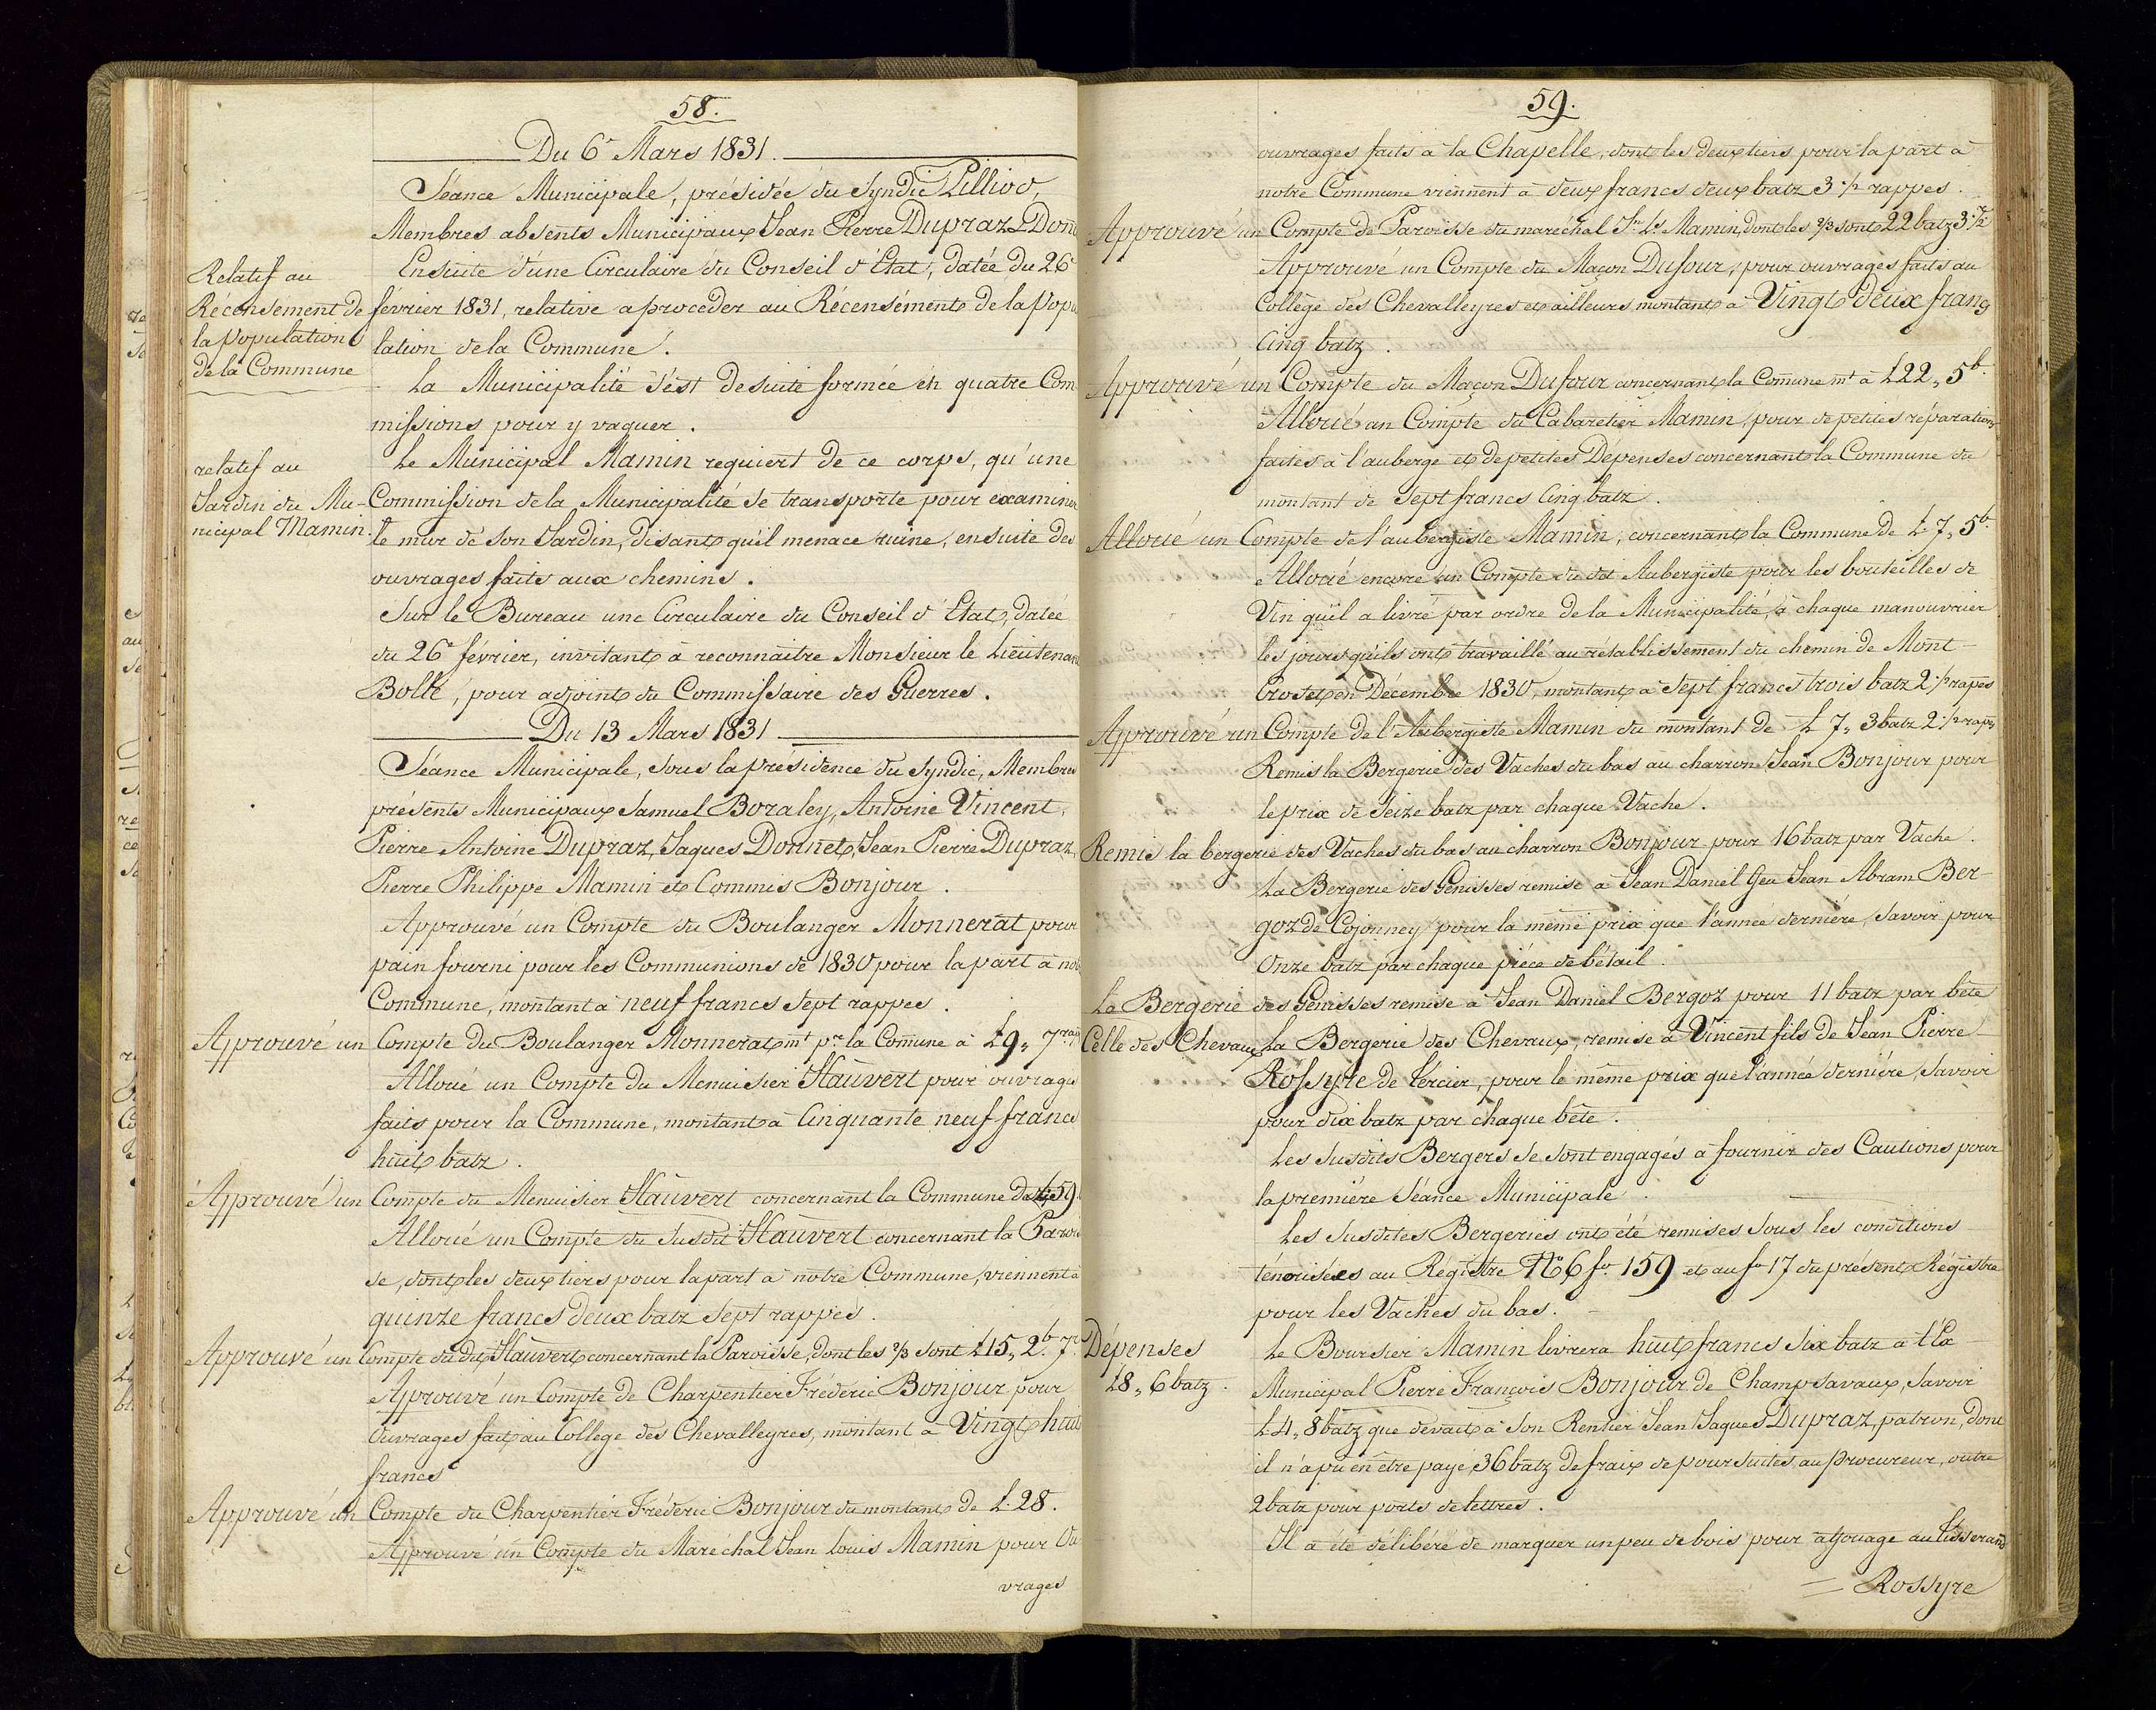 58.
Du 6e Mars 1831.
Séance Municipale, présidée du Syndic Pilliod,
Membres absents Municipaux Jean Pierre Dupraz & Donn
Relatif au
Récensement de
la population
de la Commune
Ensuite d'une Circulaire du Conseil d'Etat, datée du 26e
février 1831, relative a proceder au Récensément de la popu
lation de la Commune.
La Municipalité s'est desuite formée en quatre Com
missions pour y vaquer.
relatif au
Jardin du Mu-
nicipal Mamin.
Le Municipal Mamin requiert de ce corps, qu'une
Commission de la Municipalité se transporte pour examiner
le mur de son Jardin, disant qu'il menace ruine, ensuite des
ouvrages faits aux chemins.
Sur le Bureau une Circulaire du Conseil d'Etat, datée
du 26e février, invitant à reconnaitre Monsieur le Lieutenant
Bolle, pour adjoint du Commissaire des Guerres.
Du 13 Mars 1831
Séance Municipale, sous la présidence du Syndic, Membres
présents Municipaux Samuel Boraley, Antoine Vincent,
Pierre Antoine Dupraz, Jaques Donnet, Jean Pierre Dupraz,
Pierre Philippe Mamin et Commis Bonjour.
Approuvé un Compte du Boulanger Monnerat pour
pain fourni pour les Communions de 1830 pour la part à not
Commune, montant a neuf francs sept rappes.
Approuvé un Compte du Boulanger Monnerat mt pr la Comune à L9„ 7 rap
Alloué un Compte du Menuisier Hauvert pour ouvrages
faits pour la Commune, montant à Cinquante neuf francs
huit batz.
Approuvé un Compte du Menuisier Hauvert concernant la Commune de L59
Alloué un Compte du susdit Hauvert concernant la Parois
se, dont les deux tiers pour la part à notre Commune, viennent à
quinze francs deux batz sept rappes.
Approuvé un Compte du dit Hauvert concernant la Paroisse, dont les 2/3 sont L15„ 2b 7r
Approuvé un Compte de Charpentier Fréderic Bonjour pour
Ouvrages fait au College des Chevalleyres, montant à Vingt huit
francs
Approuvé un Compte du Charpentier Fréderic Bonjour du montant de L. 28.
Approuvé un Compte du Maréchal Jean Louis Mamin pour Ou
vrages
59.
ouvrages faits à la Chapelle, dont les deux tiers pour la part à
notre Commune viennent à deux francs deux batz 3 1/2 rappes.
Approuvé un Compte de Paroisse du maréchal Jn Ls Mamin, dont les 2/3 sont 22 batz 3 1/2
Approuvé un Compte du Maçon Dufour, pour ouvrages faits au
Collège des Chevalleyres et ailleurs montant à Vingt deux francs
Cinq batz.
Approuvé un Compte du Maçon Dufour concernant la Comune mt à L22„ 5b.
Alloué un Compte du Cabaretier Mamin, pour de petites réparations
faites à l'auberge et de petites Dépenses concernant la Commune du
montant de Sept francs Cinq batz.
Alloué un Compte de l'aubergiste Mamin, concernant la Commune de L. 7„ 5b.
Alloué encore un Compte du dit Aubergiste pour les bouteilles de
Vin qu'il a livré par ordre de la Municipalité, à chaque manouvrier
les jours qu'ils ont travaillé au rétablissement du chemin de Mont-
Croset en Décembre 1830, montant à sept francs trois batz 2 1/2 rapes
Approuvé un Compte de l'Aubergiste Mamin du montant de L 7„ 3 batz 2 1/2 rapes
Remis la Bergerie des Vaches du bas au charron Jean Bonjour pour
le prix de Seize batz par chaque Vache.
Remis la bergerie des Vaches du bas au charron Bonjour pour 16 batz par Vache.
La Bergerie des Génisses remise à Jean Daniel feu Jean Abram Ber-
goz de Cojonney pour la même prix que l'année dernière, savoir pour
Onze batz par chaque pièce de bétail.
La Bergerie des Génisses remise à Jean Daniel Bergoz pour 11 batz par bête
Celle des Chevaux La Bergerie des Chevaux, remise à Vincent fils de Jean Pierre
Rossyre de Tercier, pour le même prix que l'année dernière, Savoir
pour dix batz par chaque bête.
Les susdits Bergers se sont engagés à fournir des Cautions pour
la première Séance Municipale.
Les susdites Bergeries ont été remises sous les conditions
ténorisées au Régistre No 6 fo 159 et au fo 17 du présent Régistre
pour les Vaches du bas.
Dépenses
L8„ 6 batz.
Le Boursier Mamin livrera huit francs six batz à l'Ex
Municipal Pierre François Bonjour de Champsavaux, Savoir
L4„ 8 batz que devait à son Rentier Jean Jaques Dupraz, patron, dont
il n'a pu en être payé, 36 batz de fraix de poursuites au procureur, outre
2 batz pour ports de lettres.
Il a été délibéré de marquer un peu de bois pour afouage au Tisserand
= Rossyre